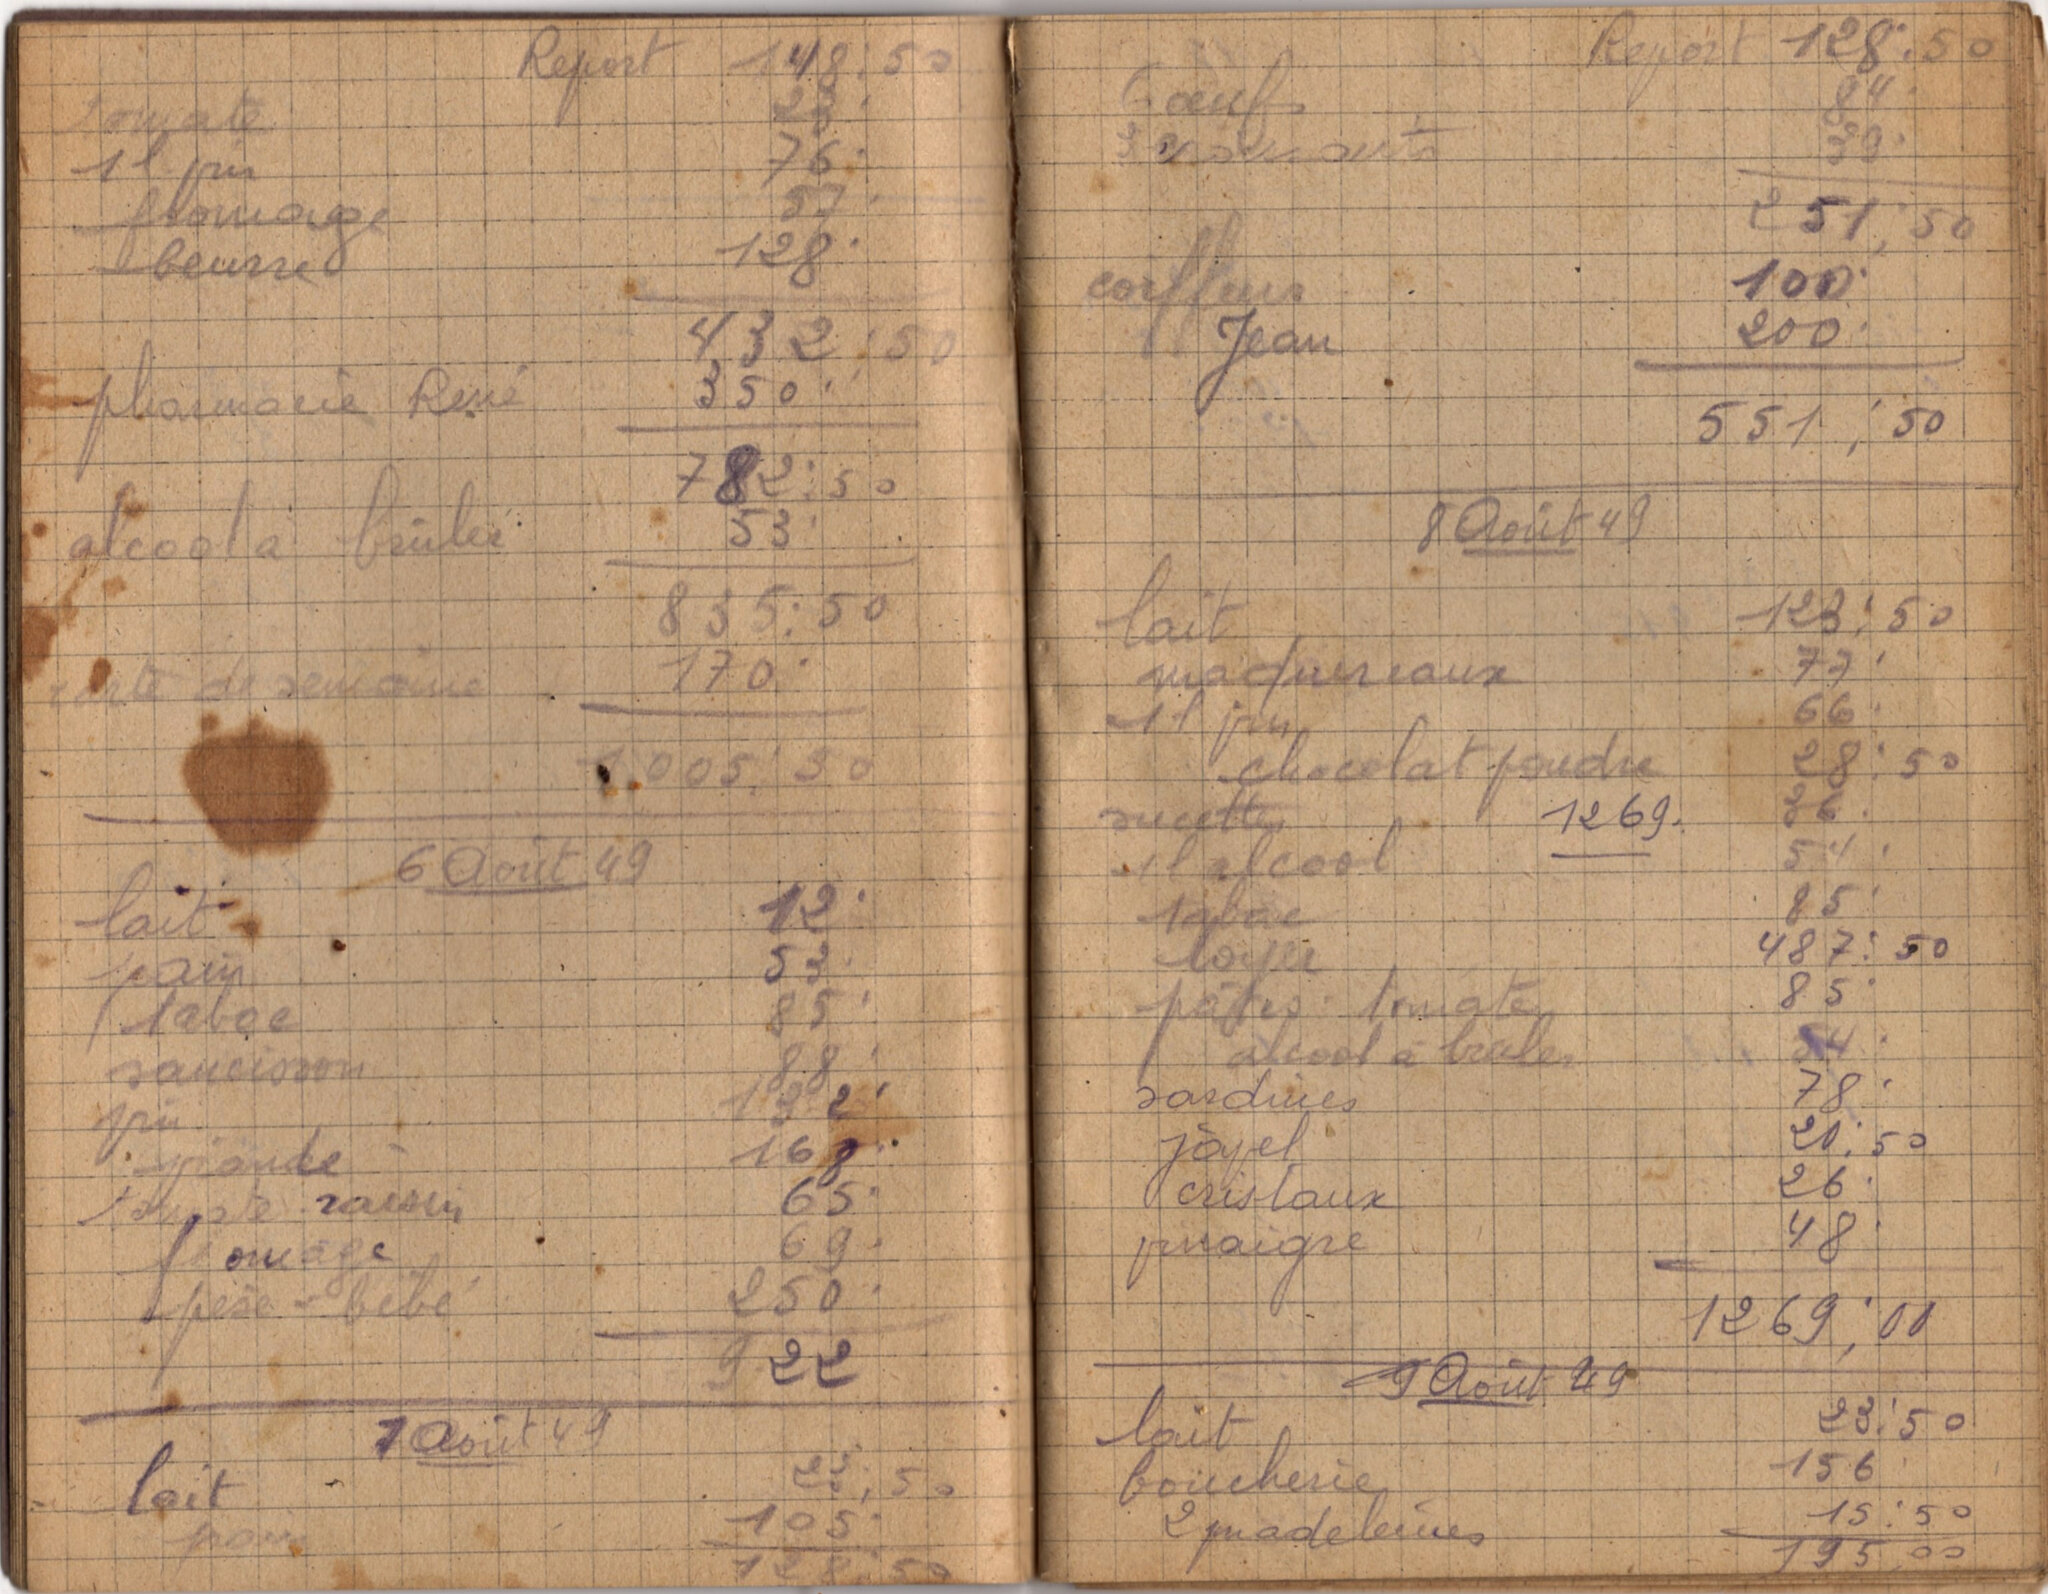 Report 148:50
tomate 23:
1 l. vin 76:
fromage 57:
beurre 128:
432:50
pharmacie René 350:
782:50
alcool à brûler 53:
835:50
170:
1.005:50
6 Août 49
lait 12:
pain 53:
tabac 85:
saucisson 88:
vin 132:
viande 168:
tomate raisin 65:
fromage 69:
pèse-bébé 250:
922
7 Août 49
lait 23:50
pain 105:
128:50
Report 128:50
6 œufs 84:
3 39:
251:50
coiffeur 100:
Jean 200:
551:50
8 Août 49
lait 123:50
maquereaux 77:
1 l vin 66:
chocolat poudre 28:50
sucettes 1269. 36:
1 l alcool 54:
tabac 85:
loyer 487:50
pâtes: tomates 85:
alcool à brûler 54:
sardines 78:
javel 20:50
cristaux 26:
vinaigre 48:
1269:00
9 Août 49
lait 23:50
boucherie 156
2 madeleines 15:50
195,00